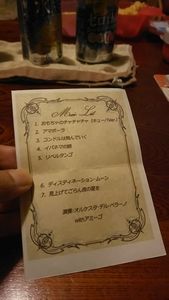 Music List
1. おもちゃのチャチャチャ (キューバVer.)
2. アマポーラ
3. コンドルは飛んでいく
4. イパネマの娘
5. リベルタンゴ
6. ディスティネーション・ムーン
7. 見上げてごらん夜の星を
演奏:オルケスタ・デル・ベラーノ
withアミーゴ